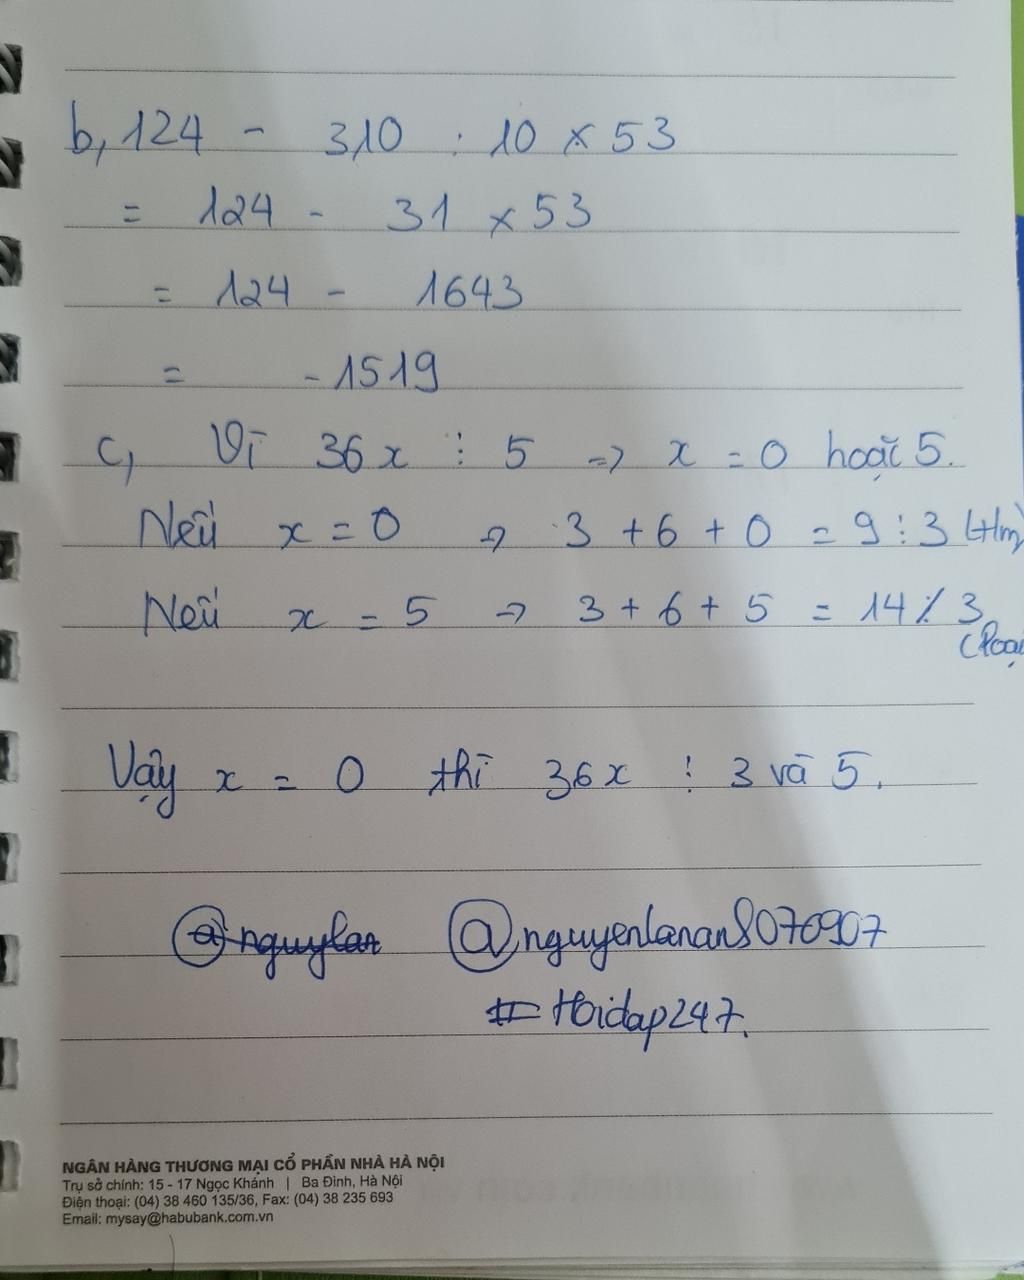 b, 124 - 310 : 10 x 53
= 124 - 31 x 53
= 124 - 1643
= -1519
c, Vì 36x ⋮ 5 => x = 0 hoặc 5.
Nếu x = 0 => 3 + 6 + 0 = 9 ⋮ 3 (t/m)
Nếu x = 5 => 3 + 6 + 5 = 14 ⋮̸ 3
Vậy x = 0 thì 36x ⋮ 3 và 5.
@nguylan @nguyenlanan8070907
# Hoidap247.
NGÂN HÀNG THƯƠNG MẠI CỔ PHẦN NHÀ HÀ NỘI
Trụ sở chính: 15 - 17 Ngọc Khánh | Ba Đình, Hà Nội
Điện thoại: (04) 38 460 135/36, Fax: (04) 38 235 693
Email: mysay@habubank.com.vn